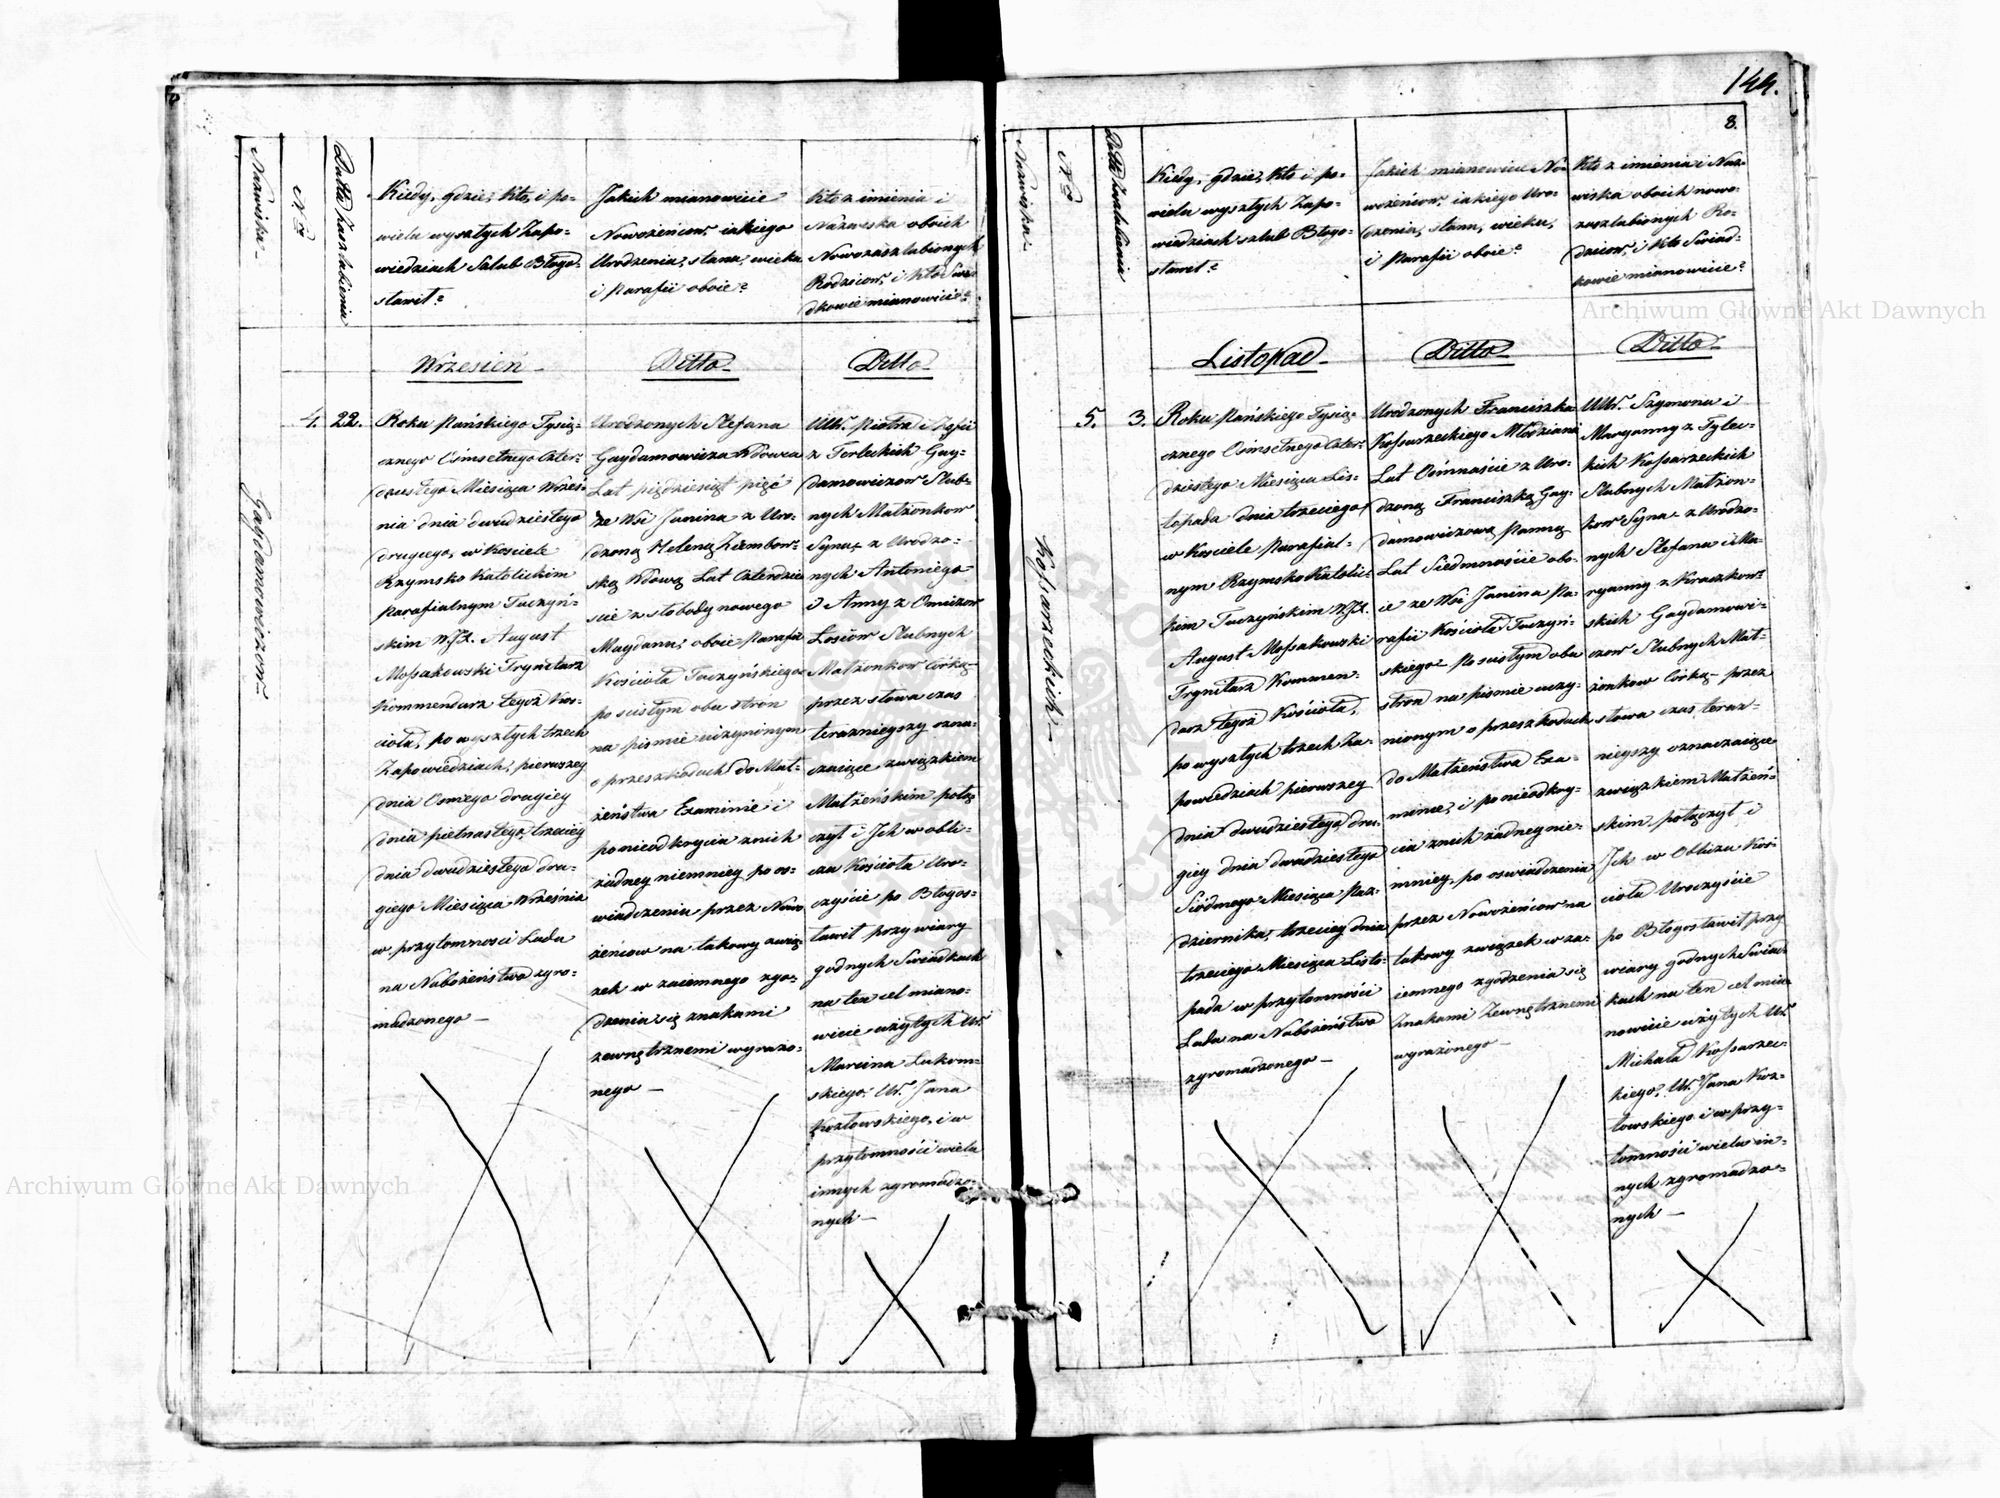 Nazwiska
N<sup>o</sup>
Datta Zaszlubienia
Kiedy, gdzie, kto, i po-
wielu wyszłych Zapo-
wiedziach Szlub Błogo-
sławił?
Jakich mianowicie
Nowożeńców, iakiego
Urodzenia, stanu, wieku
i Parafii oboie?
Kto z imienia i
Nazwiska oboich
Nowozaszlubionych
Rodziców, i kto Świa-
dkowie mianowicie?
Wrzesień
Ditto
Ditto
Gaydamowiczow
4.
22.
Roku Pańskiego Tysią-
cznego Ośmsetnego Czter-
dziestego Miesiąca Wrześ-
nia dnia dwudziestego
drugiego, w Kościele
Rzymsko Katolickim
Parafialnym Tuczyń-
skim W.JX. August
Mossakowski Trynitarz
Kommendarz tegoż Koś-
cioła, po wyszłych trzech
Zapowiedziach, pierwszey
dnia Osmego drugiey
dnia pietnastego, trzeciey
dnia dwudziestego dru-
giego Miesiąca Września
w przytomności Ludu
na Nabożeństwo zgro-
madzonego —
Urodzonych Stefana
Gaydamowicza Wdowca
Lat pięćdziesiąt pięć
ze Wsi Janina z Uro-
dzoną Heleną Ziembow-
ską Wdową Lat Czterdzie
ście z słobody nowego
Maydanu, oboie Parafii
Kościoła Tuczyńskiego
po scisłym obu stron
na pismie uczynionym
o przeszkodach do Mał-
żeństwa Examinie i
po nieodkryciu z nich
żadney niemniey po os-
wiadczeniu przez Nowo
żeńcow na takowy zwią-
zek w zaiemnego zgo-
dzenia się znakami
zewnętrznemi wyrażo-
nego —
UUr. Piotra i Zofii
z Terleckich Gay-
damowiczow Slub-
nych Małżonkow
Syna, z Urodzo-
nych Antoniego
i Anny z Omiczow
Łosiów Slubnych
Małżonkow Córką
przez słowa czas
teraznieyszy ozna-
czaiące związkiem
Małżeńskim połą
czył i Ich w obli-
czu Kościoła Uro-
czyście po Błogos-
ławił przy wiary
godnych Swiadkach
na ten cel miano-
wicie użytych Ur.
Marcina Lukom-
skiego. Ur. Jana
Kozłowskiego, i w
przytomności wielu
innych zgromadzo-
nych —
144.
8.
Nazwiska
N<sup>o</sup>
Datta Zaszlubienia
Kiedy, gdzie, kto i po-
wielu wyszłych Zapo-
wiedziach szlub Błogo-
sławił?
Jakich mianowicie No-
wożeńcow, iakiego Uro-
dzenia, stanu, wieku,
i Parafii oboie?
Kto z imienia i Naz-
wiska oboich nowo-
zaszlubionych Ro-
dziców, i kto Świad-
kowie mianowicie?
Listopad
Ditto
Ditto
Kossarzeckich
5.
3.
Roku Pańskiego Tysią-
cznego Ośmsetnego Czter-
dziestego Miesiąca Lis-
topada dnia trzeciego
w Kościele Parafial-
nym Rzymsko Katolic-
kim Tuczyńskim W.JX.
August Mossakowski
Trynitarz Kommen-
darz tegoż Kościoła,
po wyszłych trzech Za-
powiedziach pierwszey
dnia dwudziestego, dru-
giey dnia dwudziestego
Siódmego Miesiąca Paź-
dziernika, trzeciey dnia
trzeciego Miesiąca Listo-
pada w przytomności
Ludu na Nabożeństwo
zgromadzonego —
Urodzonych Franciszka
Kossarzeckiego Młodziana
Lat Ośmnaście z Uro-
dzoną Franciszką Gay-
damowiczową Panną
Lat Siedmnaście obo-
ie ze Wsi Janina Pa-
rafii Kościoła Tuczyń-
skiego Po scisłym obu
stron na pismie uczy-
nionym o przeszkodach
do Małżeństwa Exa-
minie, i po nieodkry-
ciu z nich żadney nie-
mniey, po oswiadczeniu
przez Nowożeńcow na
takowy związek w za-
iemnego zgodzenia się
Znakami Zewnętrznemi
wyrażonego —
UUr. Szymona i
Maryanny z Tylec-
kich Kossarzeckich
Slubnych Małżon-
kow Syna z Urodzo-
nych Stefana i Ma-
ryanny z Kraczkow-
skich Gaydamowi-
czow Slubnych Mał-
żonkow Córką przez
słowa czas teraz-
nieyszy oznaczaiące
związkiem Małżeń-
skim połączył i
Ich w Obliczu Koś-
cioła Uroczyście
po Błogosławił przy
wiary godnych Swiad-
kach na ten cel mia-
nowicie użytych Ur.
Michała Kossarzec-
kiego, Ur. Jana Koz-
łowskiego i w przy-
tomności wielu in-
nych zgromadzo-
nych —
Archiwum Główne Akt Dawnych
Archiwum Główne Akt Dawnych